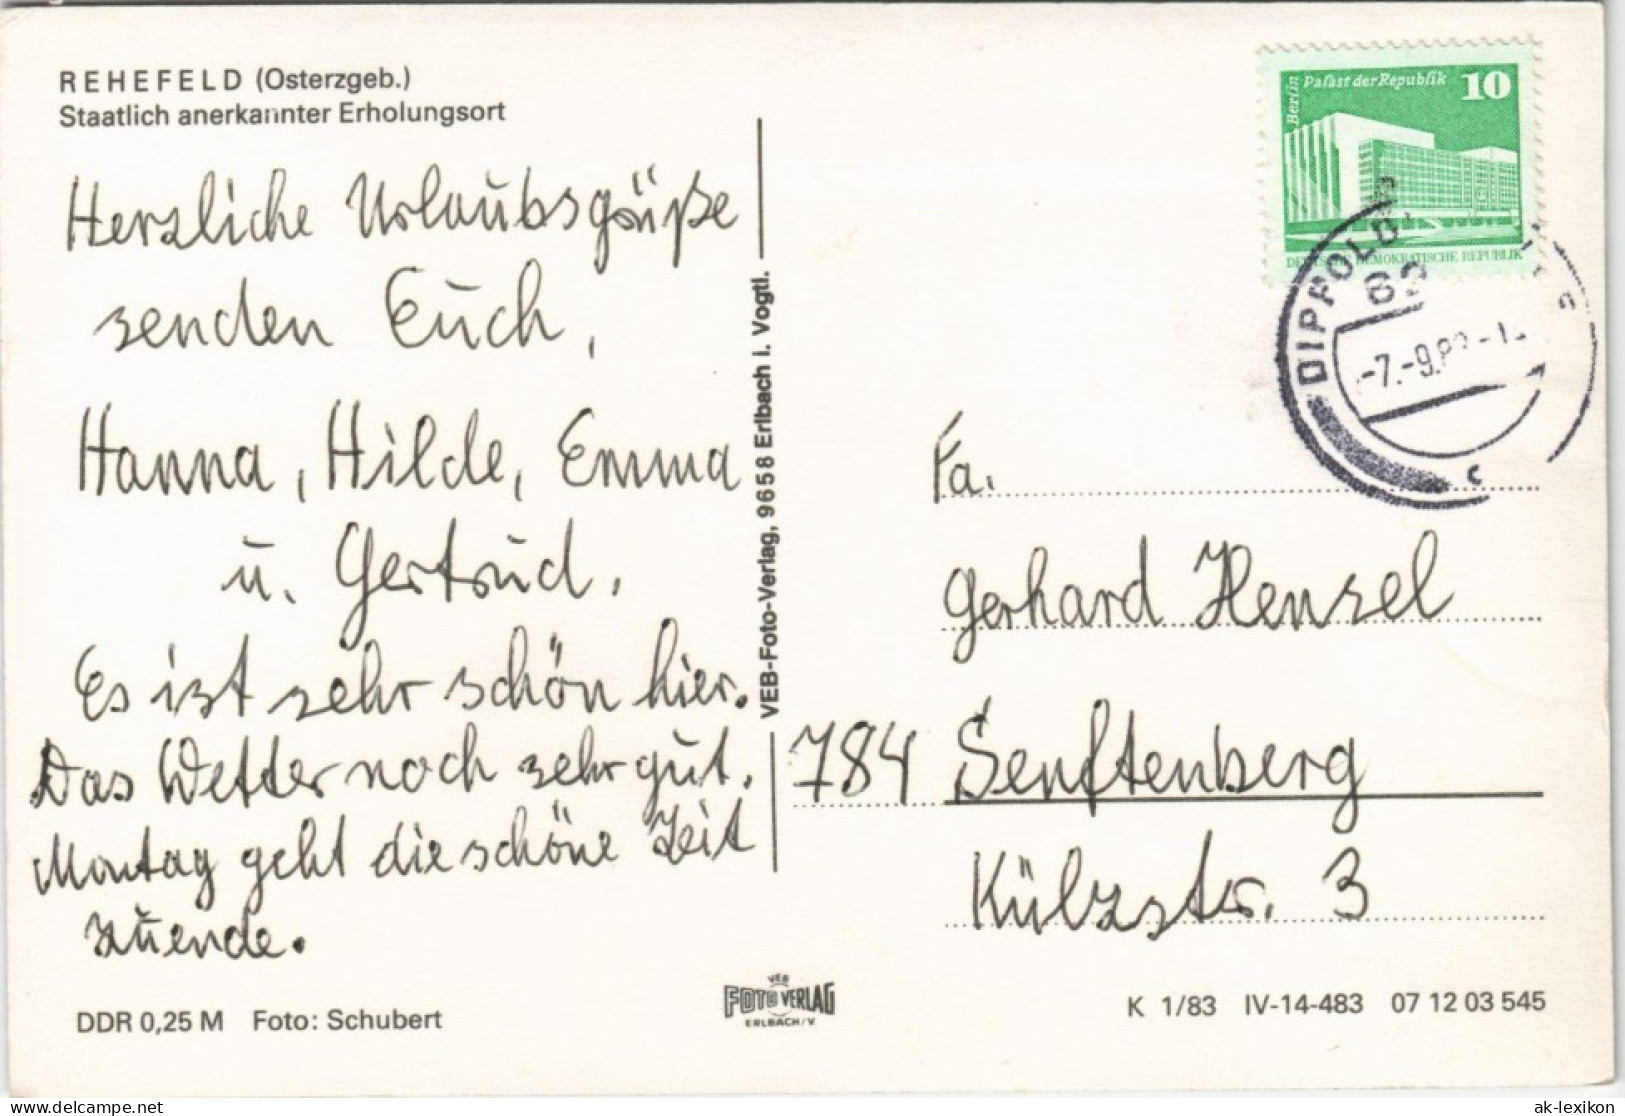 REHEFELD (Osterzgeb.)
Staatlich anerkannter Erholungsort
Herzliche Urlaubsgrüße
senden Euch,
Hanna, Hilde, Emma
u. Gertrud.
Es ist sehr schön hier.
Das Wetter noch sehr gut.
Montag geht die schöne Zeit
zuende.
DDR 0,25 M Foto: Schubert
VEB-Foto-Verlag, 9658 Erlbach i. Vogtl.
VEB
FOTO VERLAG
ERLBACH/V.
Berlin
Palast der Republik 10
DEUTSCHE DEMOKRATISCHE REPUBLIK
-7.-9.8
c
Fa.
Gerhard Hensel
784 Senftenberg
Külzstr. 3
K 1/83 IV-14-483 07 12 03 545
ak-lexikon